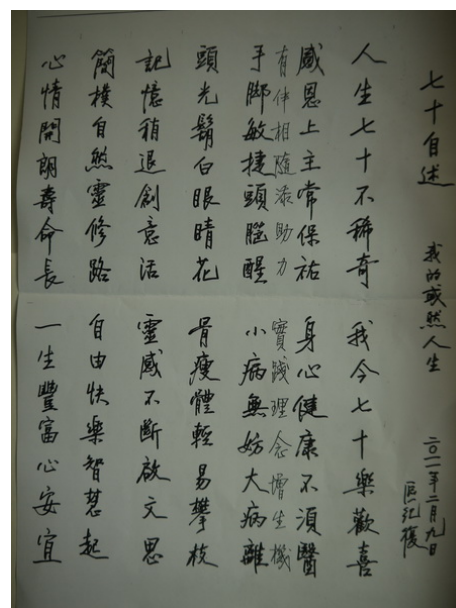 七十自述 我的或然人生
二〇一一年二月九日
区紀復
人生七十不稀奇 我今七十樂歡喜
感恩上主常保祐 身心健康不須醫
有伴相隨添助力 實踐理念增生機
手脚敏捷頭腦醒 小病無妨大病離
頭光鬍白眼睛花 骨瘦體輕易攀枝
記憶稍退創意活 靈感不斷啟文思
簡樸自然靈修路 自由快樂智慧起
心情開朗壽命長 一生豐富心安宜